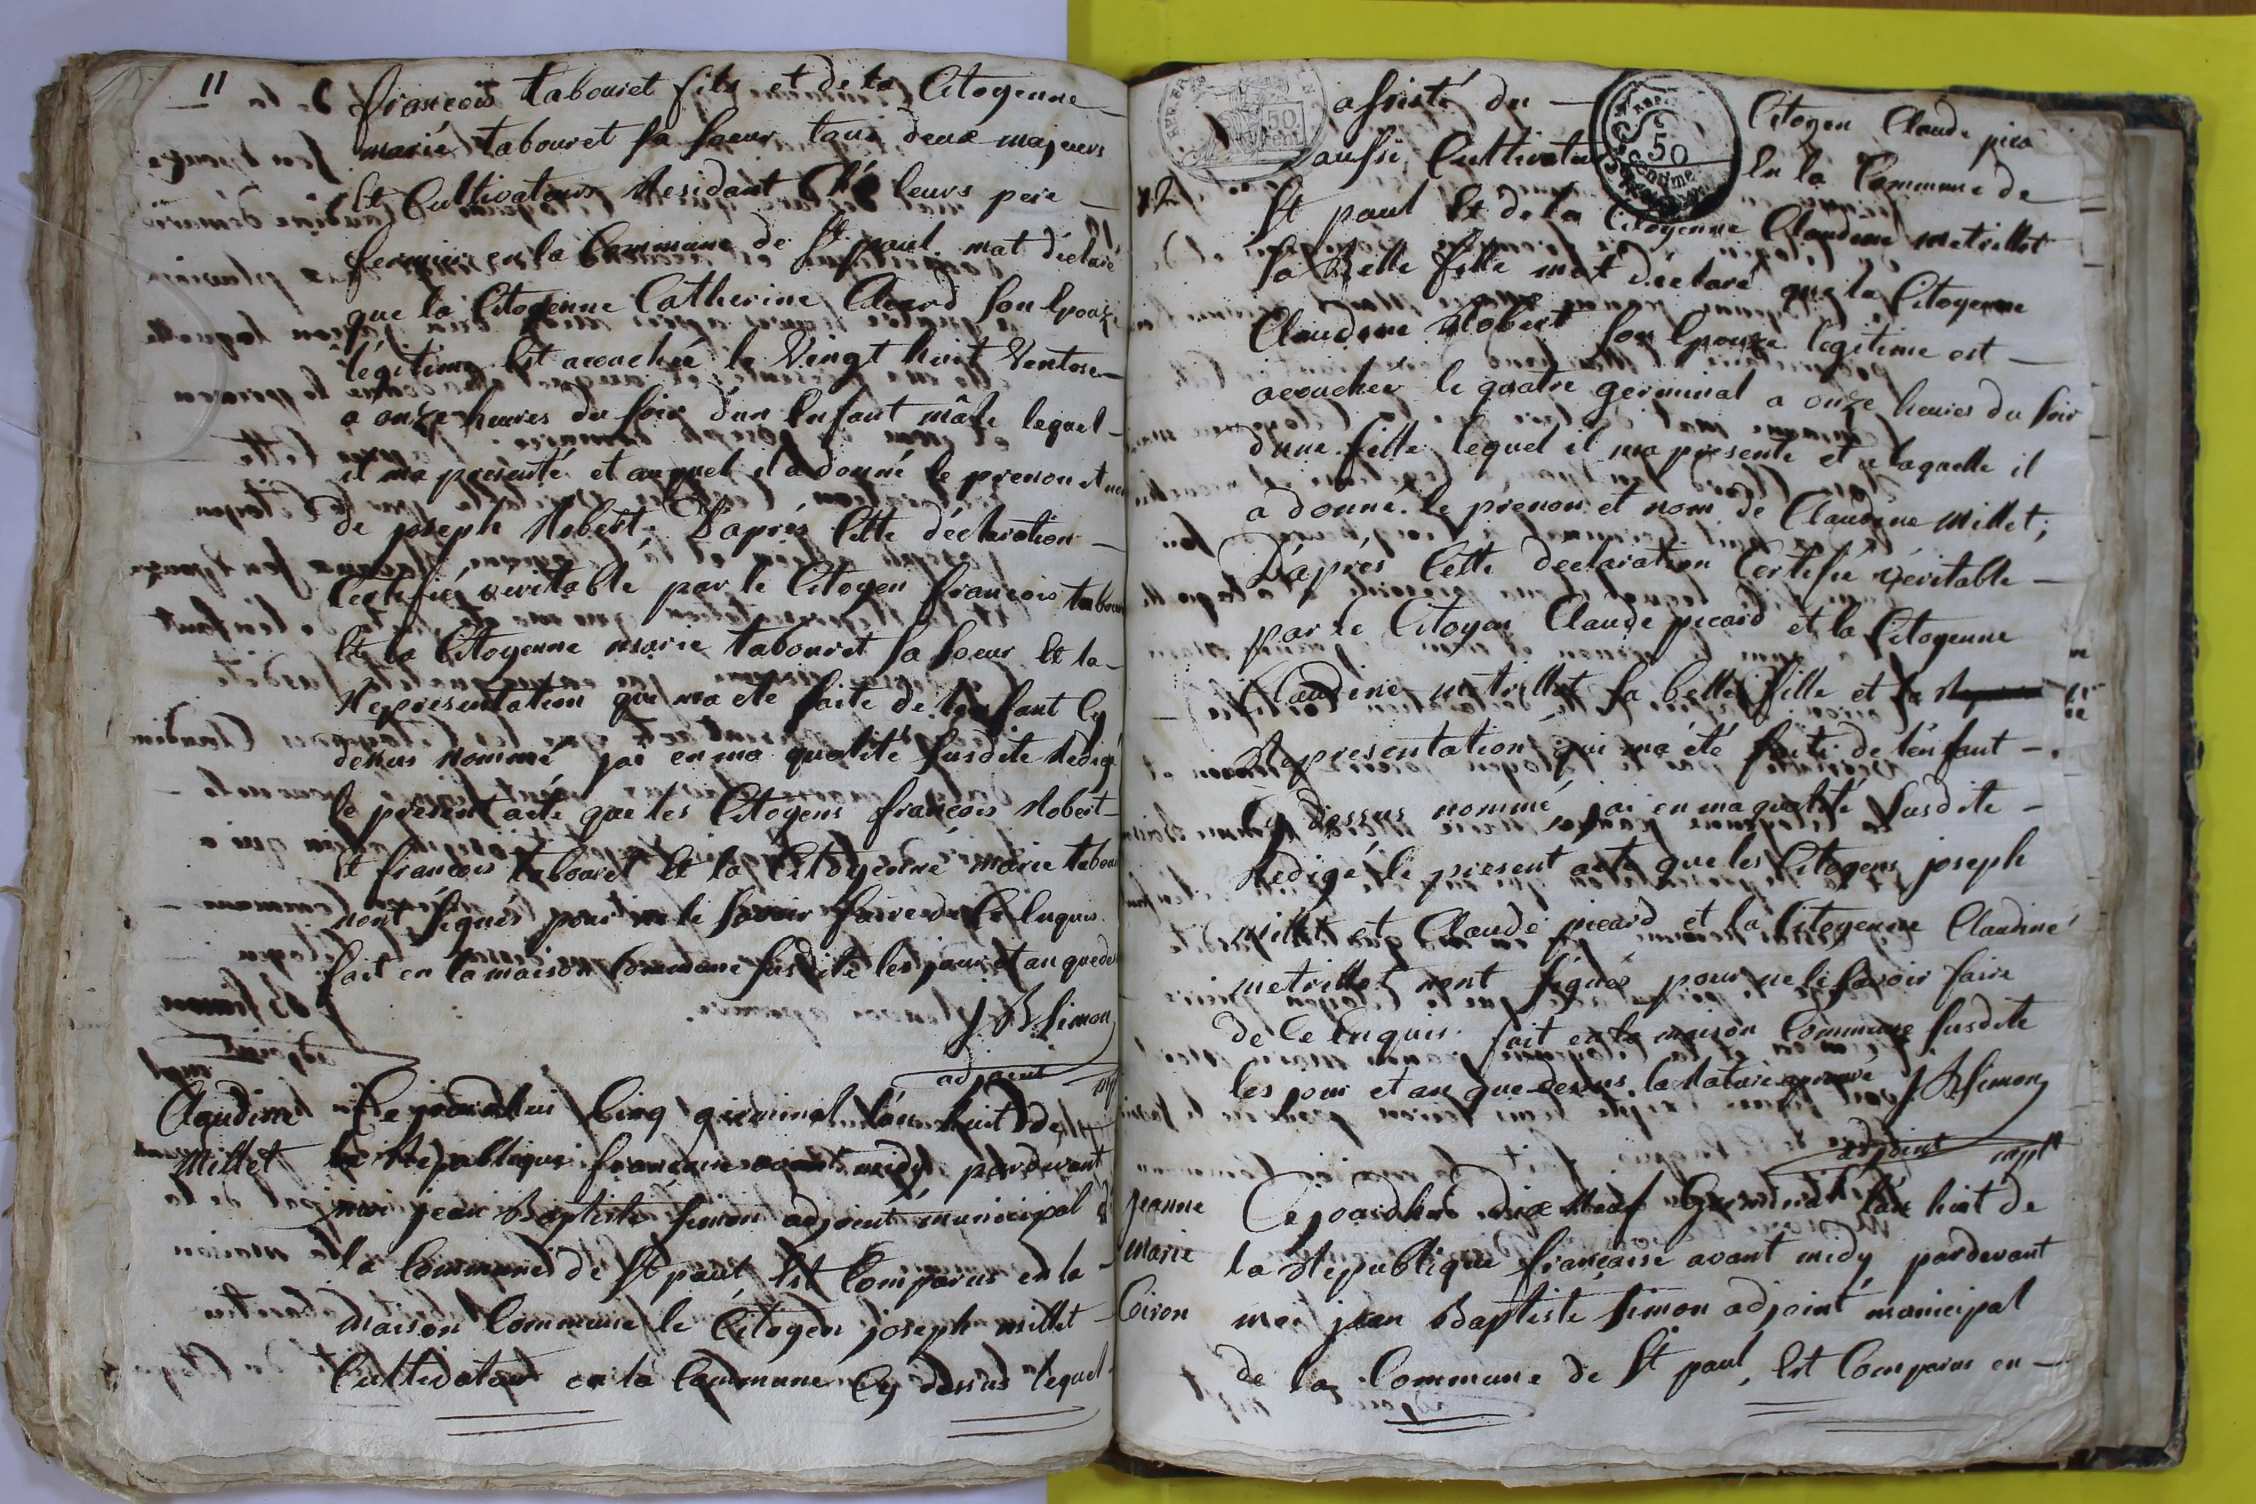 11
françois tabouret fils et de la Citoyenne
marié tabouret sa soeur tous deux majeurs
Et Cultivateurs Residant Ché leurs pere
fermier en la Commune de St paul mat déclaré
que la Citoyenne Catherine Sou Epouze
légitime Est acouchée le Vingt huit Ventose
a onze heures du soir d'un Enfant mâle lequel
il ma presenté et auquel il a donné le prenom et nom
de joseph Robert. D'aprés Cette déclaration
Certifié véritable par le Citoyen françois tabour
Et la Citoyenne marie tabouret sa soeur Et la
Representation qui ma eté faite de lenfant Cy
dessus nommé jai en ma qualité susdite Redigé
le présent acte que les Citoyens françois Robert
Et françois tabouret Et la Citoyenne marie tabou
nont signés pour ne le savoir faire de Ce Enquis
fait en la maison Commune susdite les jour et an que de
J. B Simon
adjoint
Claudine
Millet
Ce jourdhui Cinq germinal l'an huit de
la Republique francaise avant midy pardevant
moi jean Baptiste simon adjoint municipal
la Commune de St paul Est Comparus en la
maison Commune le Citoyen joseph millet
Cultivateur en la Commune Cy dessus lequel
assisté du Citoyen Claude pica
aussi Cultivateur En la Commune de
St paul Et de la Citoyenne Claudine metrillot
sa Belle fille mat déclaré que la Citoyenne
Claudine Robert son Epouze legitime est
acouchée le quatre germinal a onze heures du soir
dune fille lequel il ma présenté et a laquelle il
a donné le prénom et nom de Claudine Millet;
D'aprés Cette declaration Certifié véritable
par le Citoyen Claude picard et la Citoyenne
Claudine metrillot sa belle fille et la
Representation qui ma été faite de lénfant
Cy dessus nommé jai en ma qualité susdite
Redigé le présent acte que les Citoyens joseph
millet et Claude picard et la Citoyenne Claudine
metrillot nont signés pour ne le savoir faire
de Ce Enquis. fait en la maison Commune susdite
les jour et an que dessus la Rature aprouvé J. B Simon
adjoint mpl
jeanne
Marie
Ciron
Ce jourdhui dix neuf Germinal l'an huit de
la Republique française avant midy pardevant
moi jean Baptiste simon adjoint municipal
de la Commune de St paul, Est Comparus en
50
Centimes